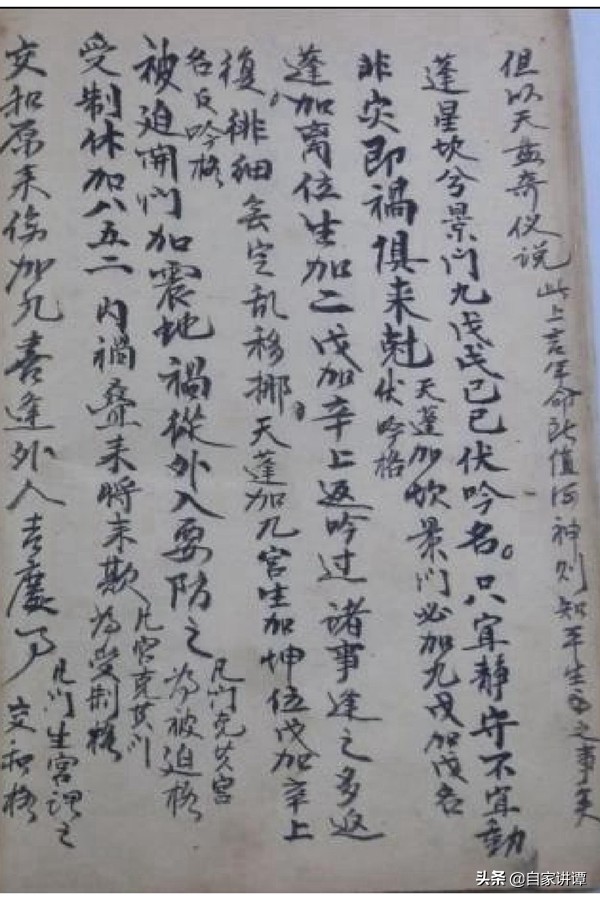 但以天盘奇仪说 此上言年命所值何神则知平生之事矣
蓬星坎兮景门九戊戊己己伏吟名。只宜静守不宜動
非灾即禍俱来尅 天蓬加坎景门必加九戊加戊名
伏吟格
蓬加离位生加二戊加辛上返吟过 诸事逢之多返
復。徘徊無定乱移挪。天蓬加九宫生加坤位戊加辛上
名反吟格
被迫開门加震地禍從外入要防之 凡门克其宫
為被迫格
受制休加八五二内禍叠来將来欺 凡宫克其门
為受制格
交和原来傷加九喜逢外人吉慶多 凡门生宫謂之
交和格
头条 @自家讲谭